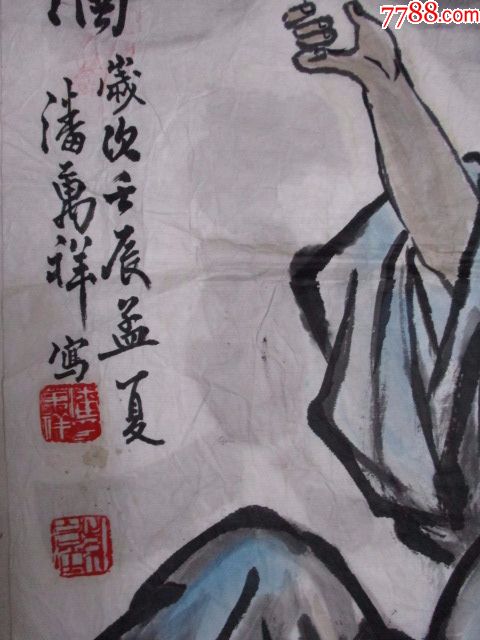 7788.com
歲次壬辰孟夏
潘萬祥寫